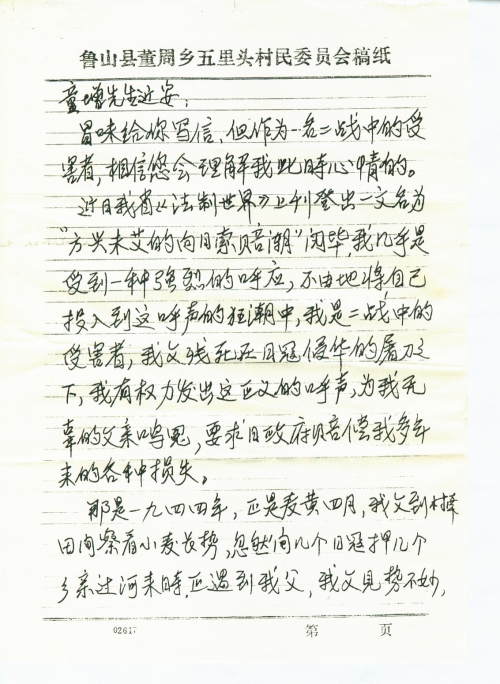 鲁山县董周乡五里头村民委员会稿纸
童增先生近安：
冒昧给你写信，但作为一名二战中的受
害者，相信您会理解我此时心情的。
近日我省《法制世界》上刊登出一文名为
“方兴未艾的向日索赔潮”阅毕，我几乎是
受到一种强烈的呼应，不由地将自己
投入到这呼声的狂潮中，我是二战中的
受害者，我父残死在日寇侵华的屠刀之
下，我有权力发出这正义的呼声，为我无
辜的父亲鸣冤，要求日政府赔偿我多年
来的各种损失。
那是一九四四年，正是麦黄四月，我父到村
田间察看小麦长势，忽然间几个日寇押几个
乡亲过河来时，正遇到我父，我父见势不妙，
02617
第 页